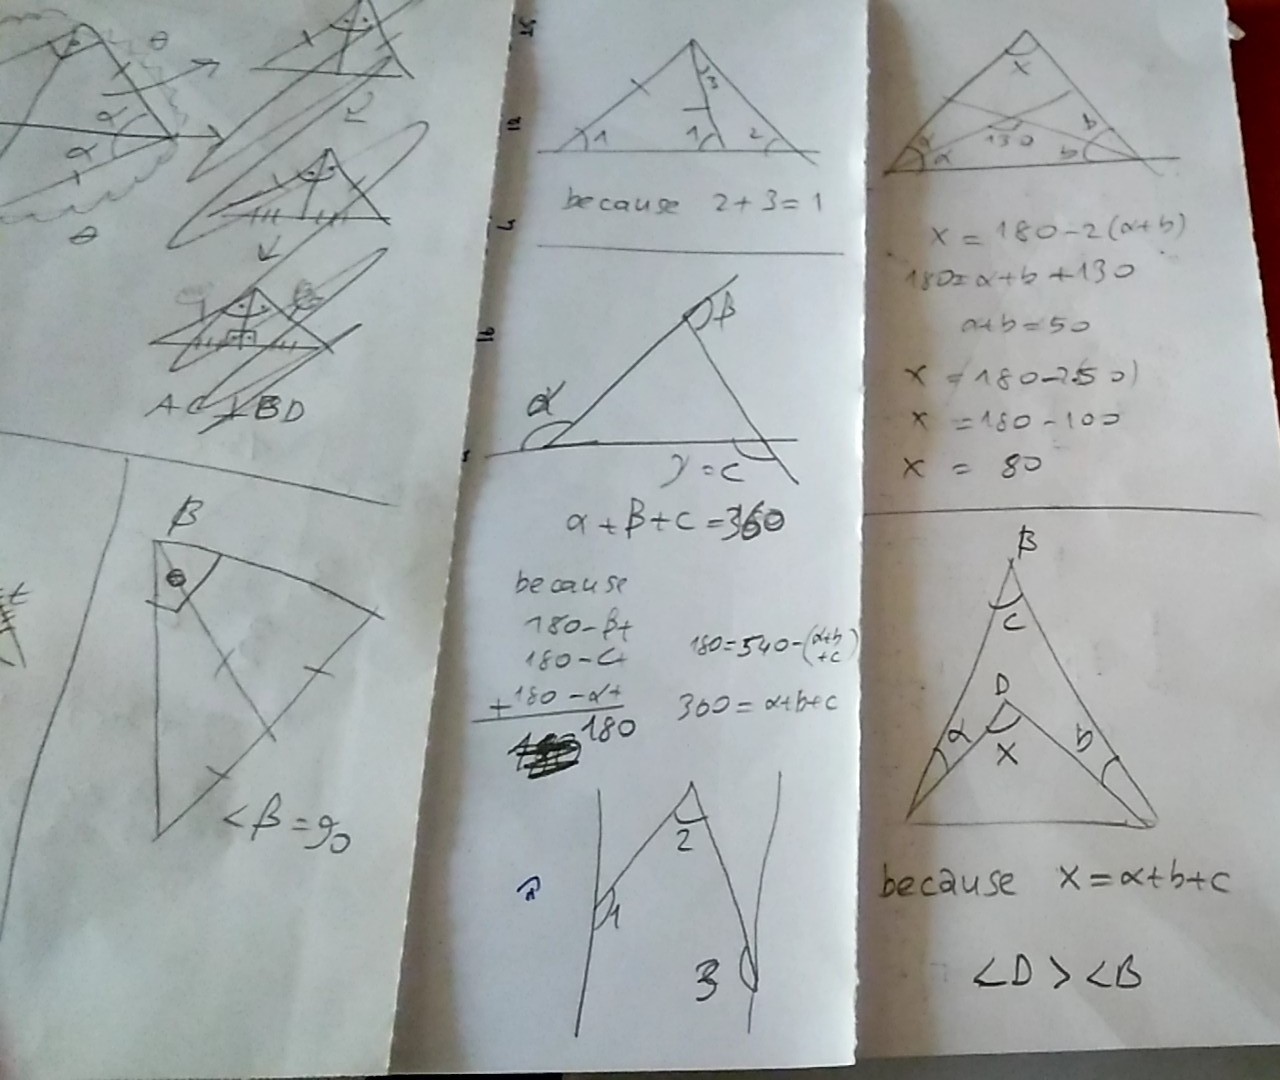 θ
α
α
θ
AC ⊥ BD
β
θ
<β = 90
15
12
16
3
1
1
2
because 2 + 3 = 1
β
α
γ = c
α + β + c = 360
because
180 - β +
180 - c +
+ 180 - α +
180
180 = 540 - (α + b + c)
360 = α + b + c
1
2
3
x
α
α
130
b
b
x = 180 - 2 (α + b)
180 = α + b + 130
α + b = 50
x = 180 - 2(50)
x = 180 - 100
x = 80
B
c
D
α
x
b
because x = α + b + c
<D > <B